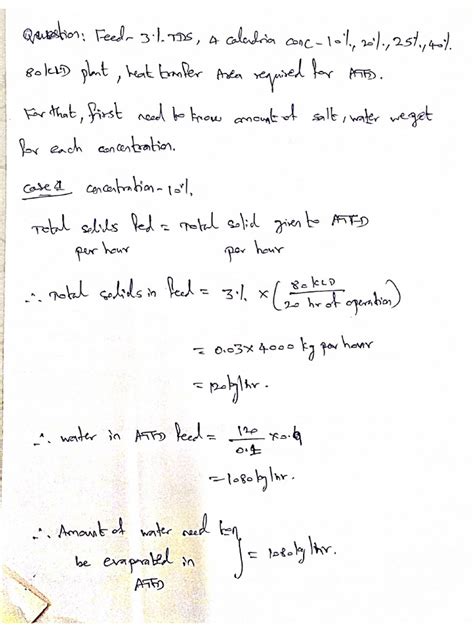 Question: Feed - 3% TDS, 4 calendria conc - 10%, 20%, 25%, 40%.
80 KLD plant, heat transfer Area required for ATFD.
For that, first need to know amount of salt, water we get
for each concentration.
Case 1 concentration - 10%.
Total solids fed = Total solid given to ATFD
per hour per hour
∴ Total solids in feed = 3% × (80 KLD / 20 hr of operation)
= 0.03 × 4000 kg per hour
= 120 kg/hr.
∴ water in ATFD feed = 120 / 0.1 × 0.9
= 1080 kg/hr.
∴ Amount of water need
be evaporated in } = 1080 kg/hr.
ATFD